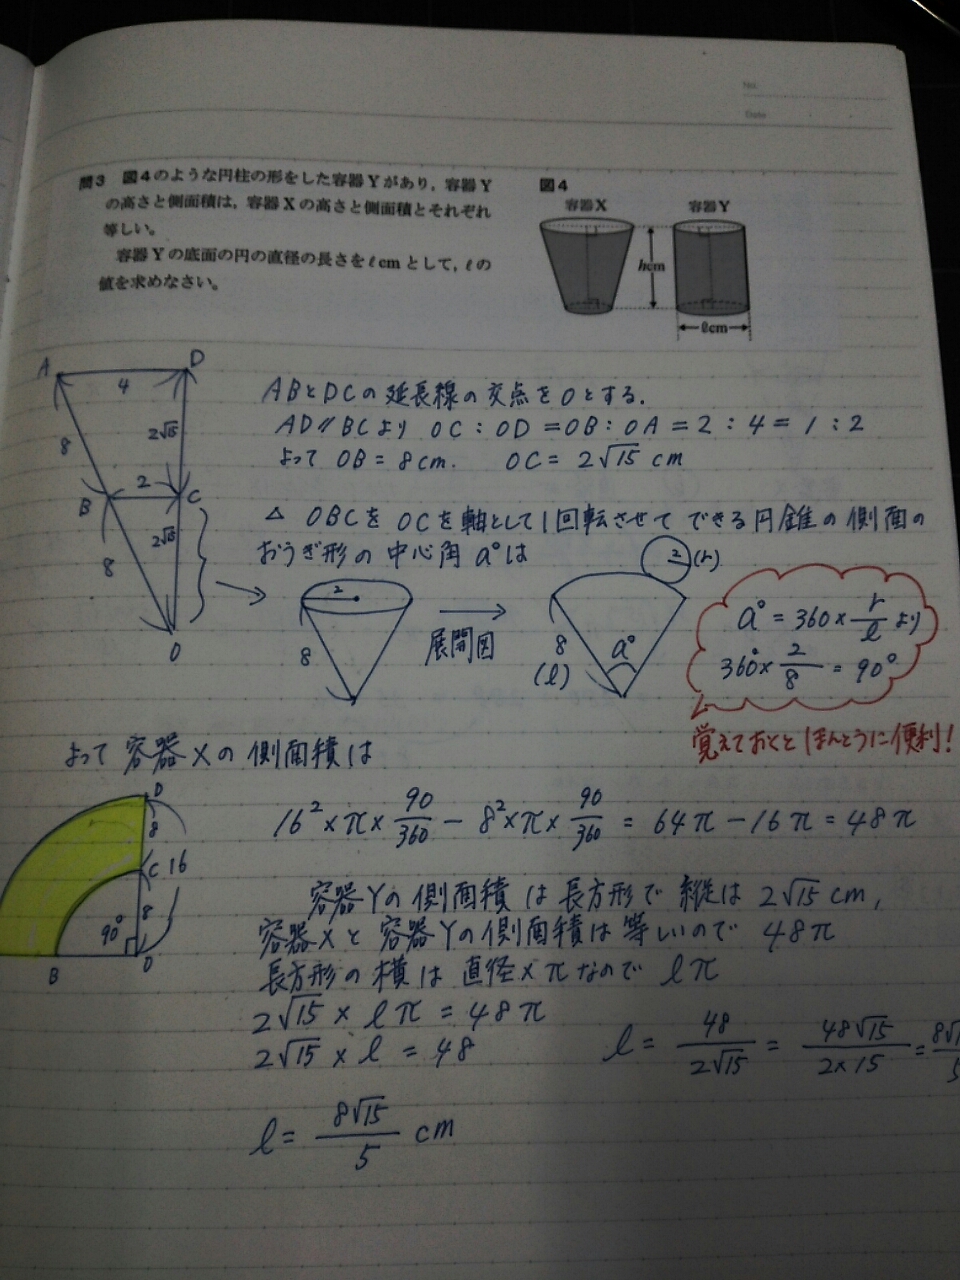 No.
Date
問3 図4のような円柱の形をした容器Yがあり，容器Y
の高さと側面積は，容器Xの高さと側面積とそれぞれ
等しい。
容器Yの底面の円の直径の長さをℓcmとして，ℓの
値を求めなさい。
図4
容器X 容器Y
hcm
ℓcm
A D
4
8 2√15
2
B C
8 2√15
O
ABとDCの延長線の交点をOとする.
AD//BCより OC:OD=OB:OA=2:4=1:2
よって OB=8cm. OC=2√15 cm
△OBCをOCを軸として1回転させてできる円錐の側面の
おうぎ形の中心角a°は
2
8
展開図
2 (r)
8
(l)
a°
a°=360×r/lより
360°×2/8=90°
覚えておくとほんとうに便利!
よって容器Xの側面積は
D
8
C 16
8
90°
B O
16²×π×90/360-8²×π×90/360=64π-16π=48π
容器Yの側面積は長方形で縦は2√15cm,
容器Xと容器Yの側面積は等しいので 48π
長方形の横は直径×πなので lπ
2√15×lπ=48π
2√15×l=48
l=48/2√15=48√15/2×15=
l=8√15/5 cm